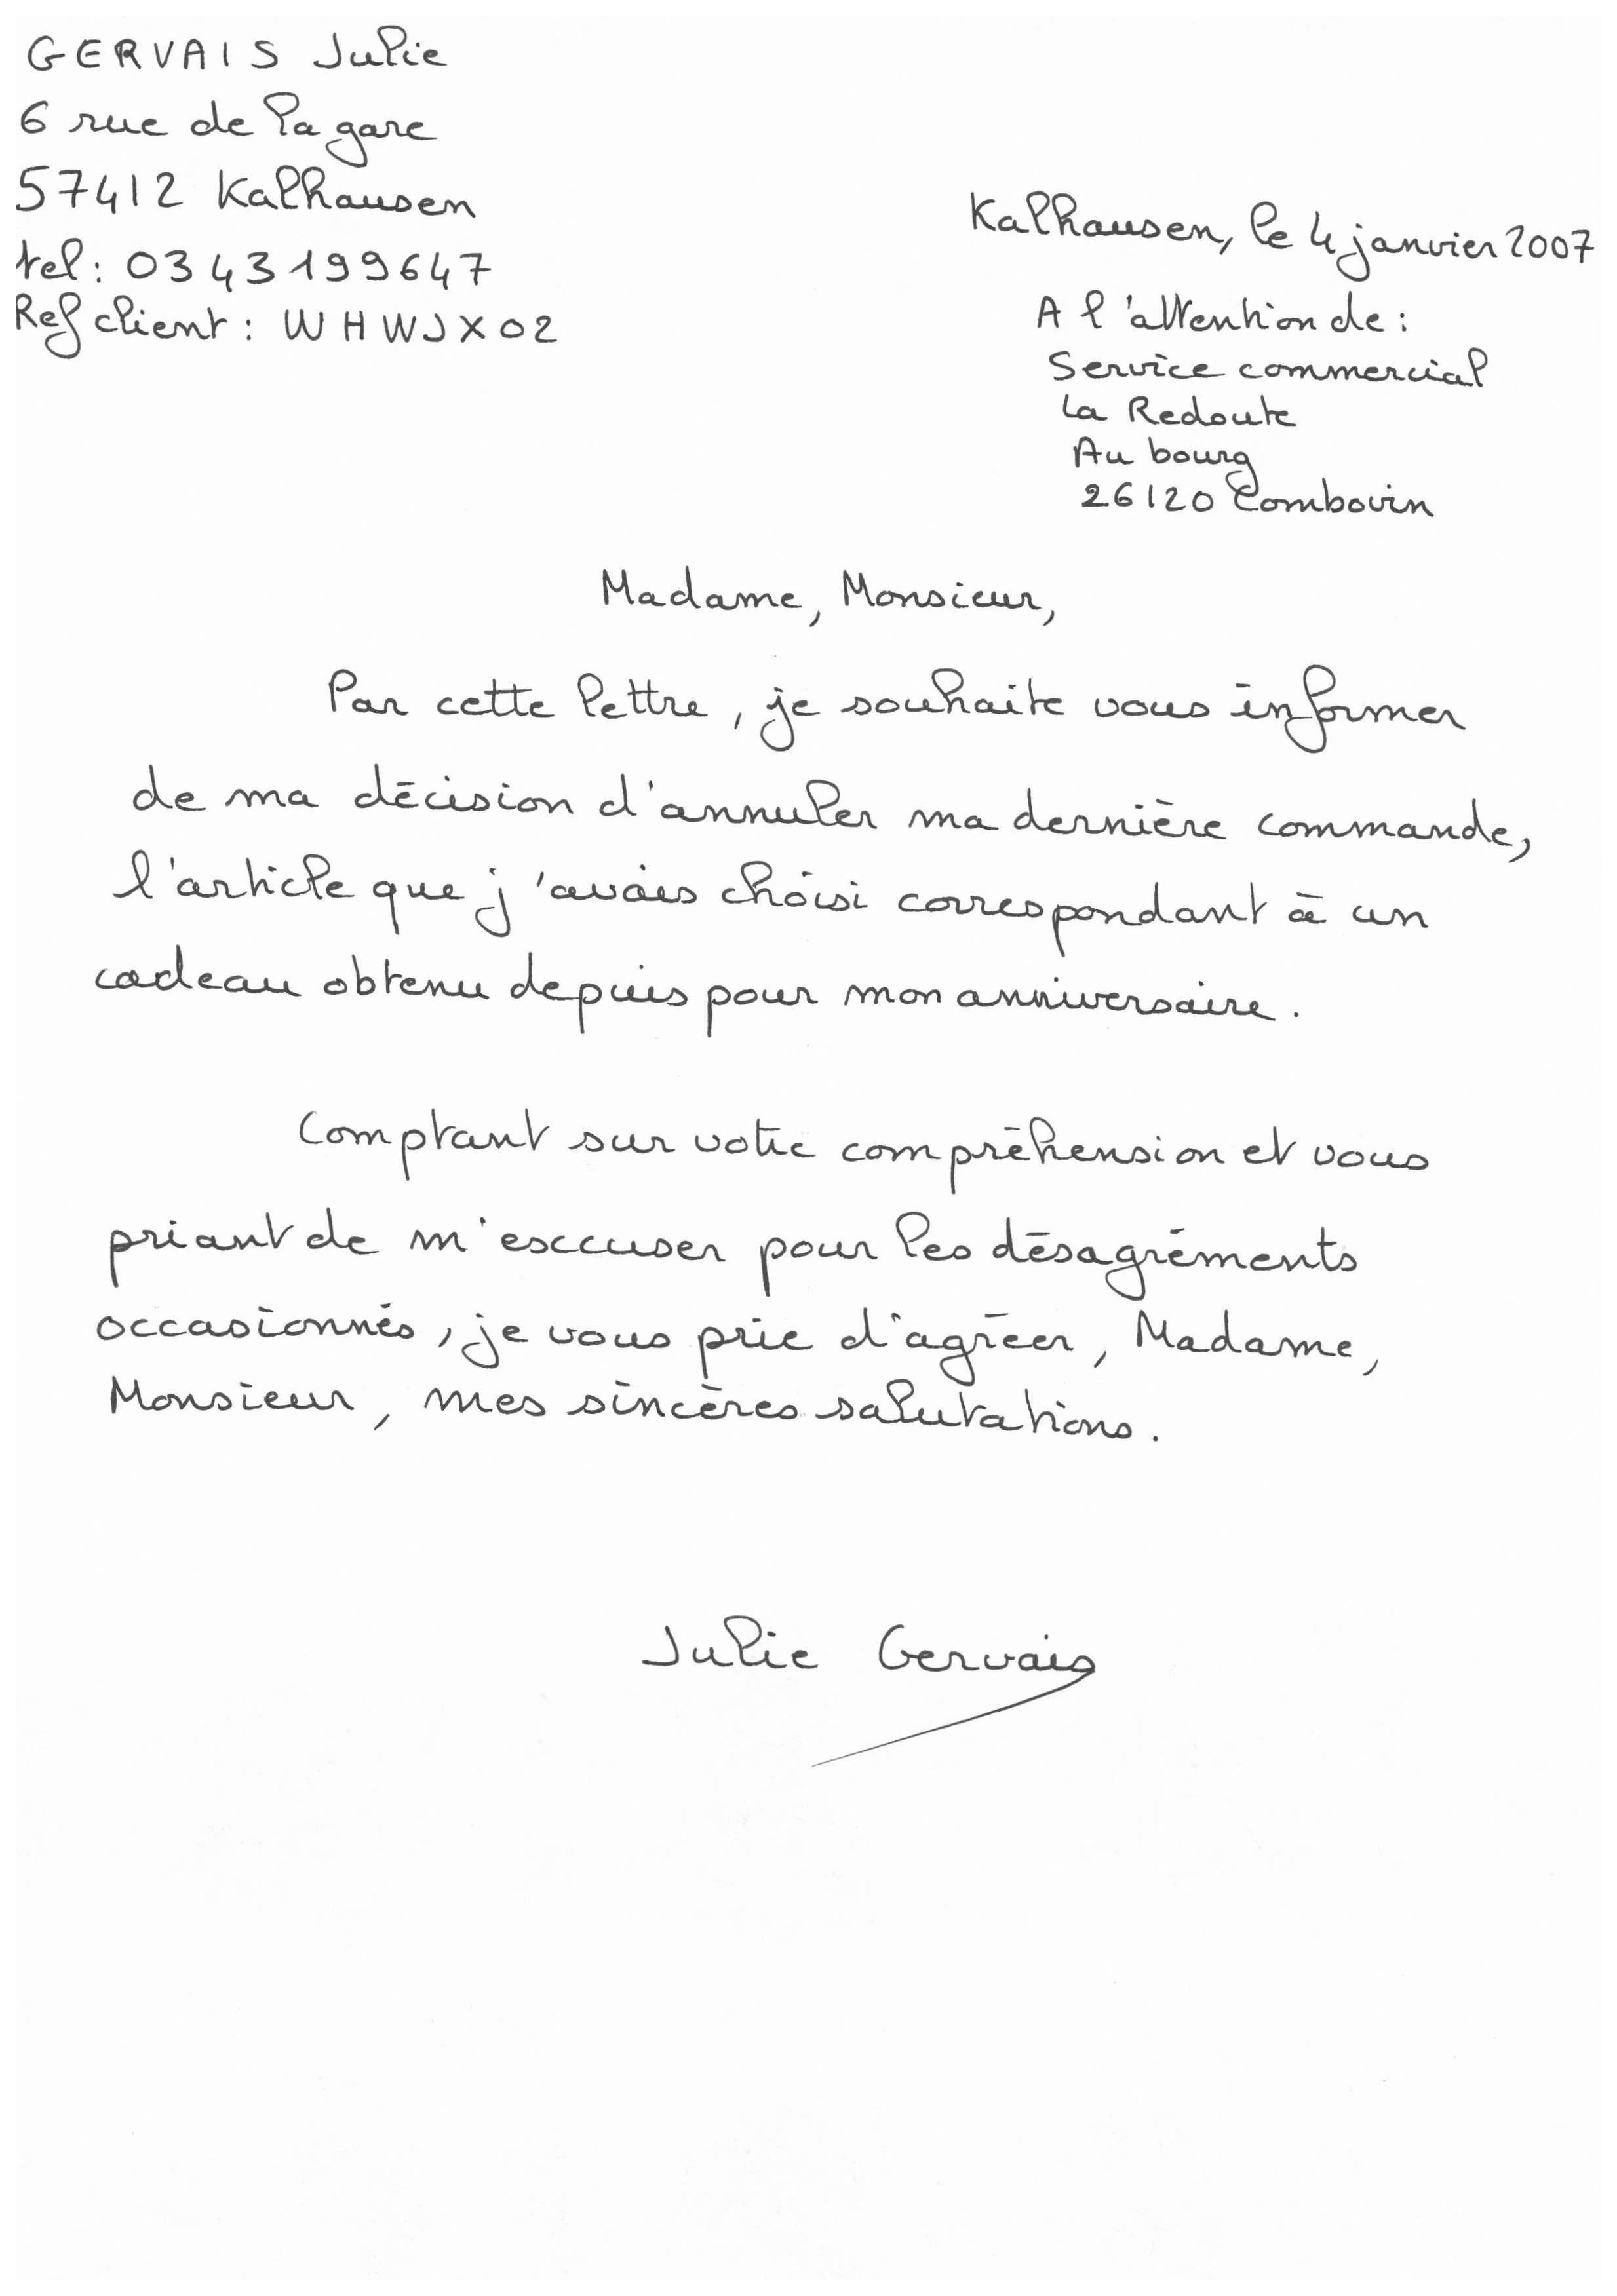 GERVAIS Julie
6 rue de la gare
57412 Kalhausen
tel : 0343199647
Ref client : WHWJX02
Kalhausen, le 4 janvier 2007
A l'attention de :
Service commercial
La Redoute
Au bourg
26120 Combovin
Madame, Monsieur,
Par cette lettre, je souhaite vous informer
de ma décision d'annuler ma dernière commande,
l'article que j'avais choisi correspondant à un
cadeau obtenu depuis pour mon anniversaire.
Comptant sur votre compréhension et vous
priant de m'esccuser pour les désagréments
occasionnés, je vous prie d'agréer, Madame,
Monsieur, mes sincères salutations.
Julie Gervais